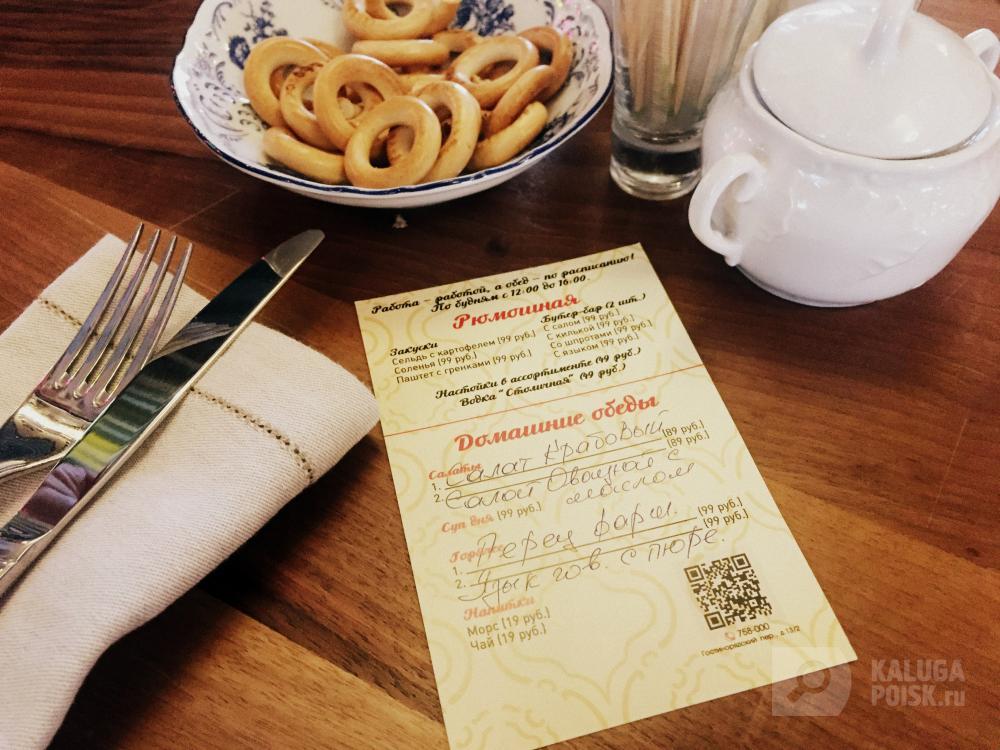 Работа – работой, а обед – по расписанию!
По будням с 12:00 до 16:00.
Рюмошная
Закуски
Сельдь с картофелем (99 руб.)
Соленья (99 руб.)
Паштет с гренками (99 руб.)
Бутер-бар (2 шт.)
С салом (99 руб.)
С килькой (99 руб.)
Со шпротами (99 руб.)
С языком (99 руб.)
Настойки в ассортименте (49 руб.)
Водка "Столичная" (49 руб.)
Домашние обеды
Салаты
1. Салат Крабовый (89 руб.)
2. Салат Овощной с маслом (89 руб.)
Суп дня (99 руб.)
Горячее
1. Перец фарш. (99 руб.)
2. Язык гов. с пюре. (99 руб.)
Напитки
Морс (19 руб.)
Чай (19 руб.)
758-000
Гостинорядский пер., д.13/2
KALUGA
POISK.ru